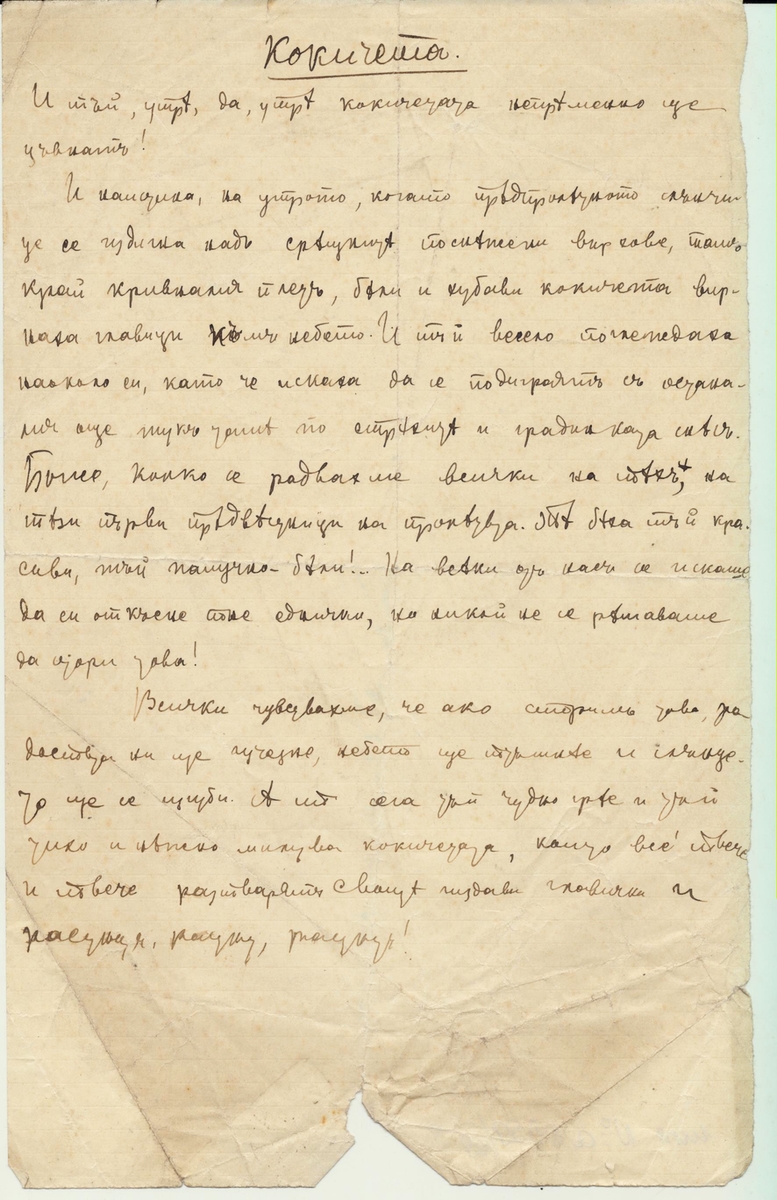 Кокичета.
И тъй, утрѣ, да, утрѣ кокичетата непрѣменно ще
цъвнатъ!
И наистина, на утрото, когато прѣдпролѣтното слънчи-
це се издигна надъ срѣщнитѣ поснѣжени вирхове, тамъ
край кривналия плетъ, бѣли и хубави кокичета вир-
наха главици към небето. И тъй весело погледаха
наоколо си, като че искаха да се подиграятъ съ остана-
лия още тукъ тамѣ по стрѣхитѣ и градинката снѣгъ.
Боже, колко се радвахме всички на тѣхъ, на
тѣзи първи прѣдвѣстници на пролѣтьта. Тѣ бѣха тъй кра-
сиви, тъй памучно-бѣли!.. На всѣки отъ насъ се искаше
да си откъсне поне едничко, но никой не се рѣшаваше
да стори това!
Всички чувствахме, че ако сторимъ това, ра-
достьта ни ще изчезне, небето ще потъмнѣе и слънце-
то ще се изгуби. А то сега тъй чудно грѣе и тъй
тихо и нѣжно милува кокичетата, които все повече
и повече разтварятъ своитѣ гиздави главички и
растатъ, растатъ, растатъ!